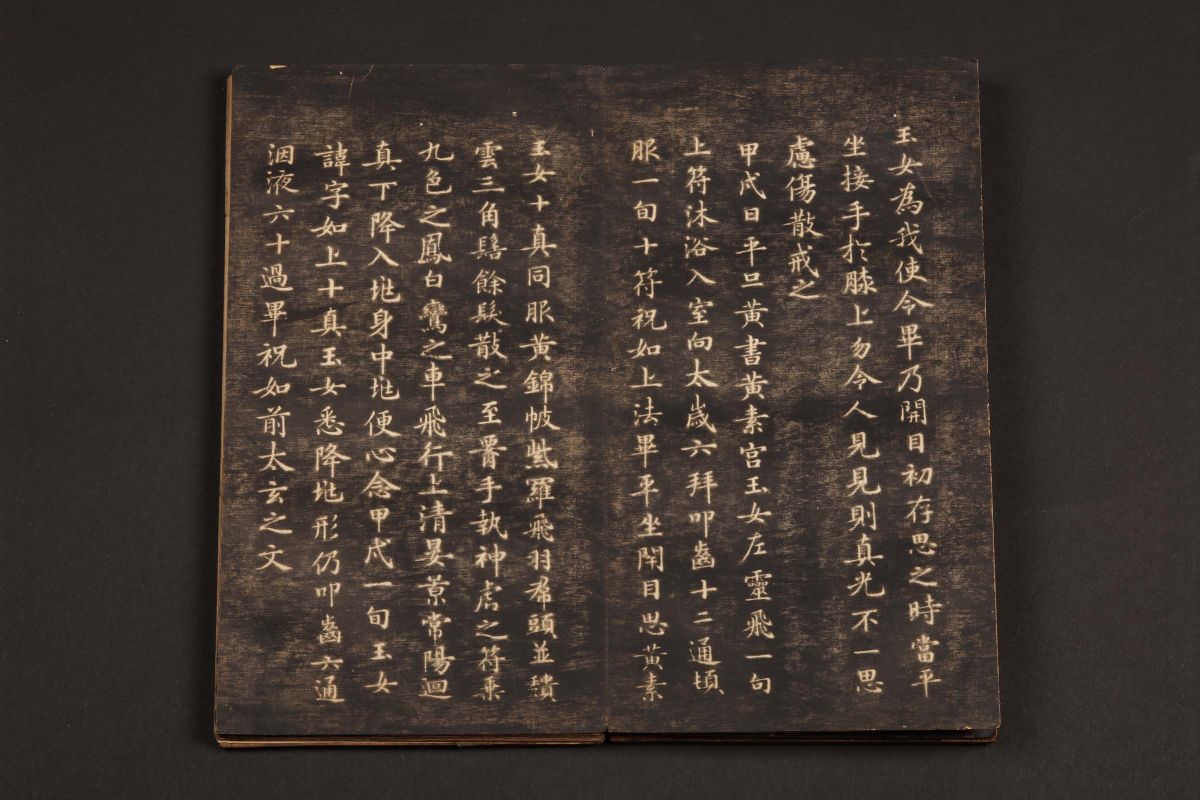 玉女為我使令畢乃開目初存思之時當平
坐接手於膝上勿令人見見則真光不一思
慮傷散戒之
甲戌日平旦黃書黃素宮玉女左靈飛一旬
上符沐浴入室向太歲六拜叩齒十二通頓
服一旬十符祝如上法畢平坐閇目思黃素
玉女十真同服黃錦帔紫羅飛羽帬頭並穨
雲三角髻餘髮散之至署手執神虎之符乗
九色之鳳白鸞之車飛行上清晏景常陽迴
真下降入㘴身中㘴便心念甲戌一旬玉女
諱字如上十真玉女悉降㘴形仍叩齒六通
洇液六十過畢祝如前太玄之文